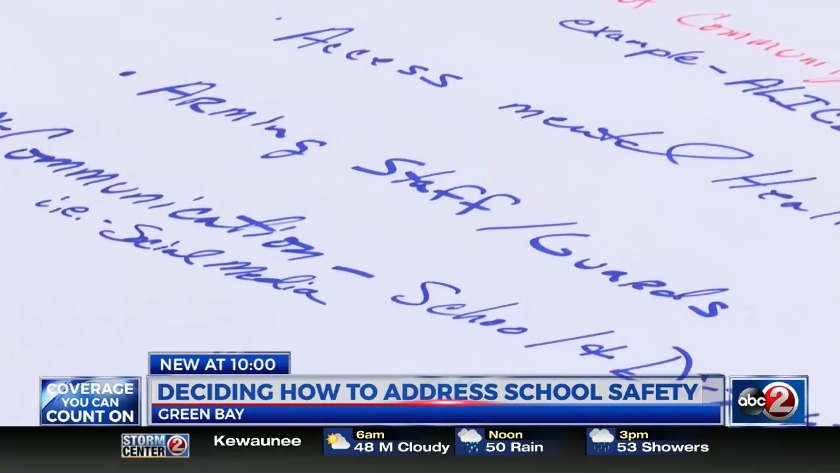 Communi
example - ALIC
• Access mental Heal
• Arming Staff/Guards
Communication - School/&
i.e. - Social Media
NEW AT 10:00
DECIDING HOW TO ADDRESS SCHOOL SAFETY
GREEN BAY
COVERAGE
YOU CAN
COUNT ON
abc 2
STORM
CENTER 2
Kewaunee
6am
48 M Cloudy
Noon
50 Rain
3pm
53 Showers